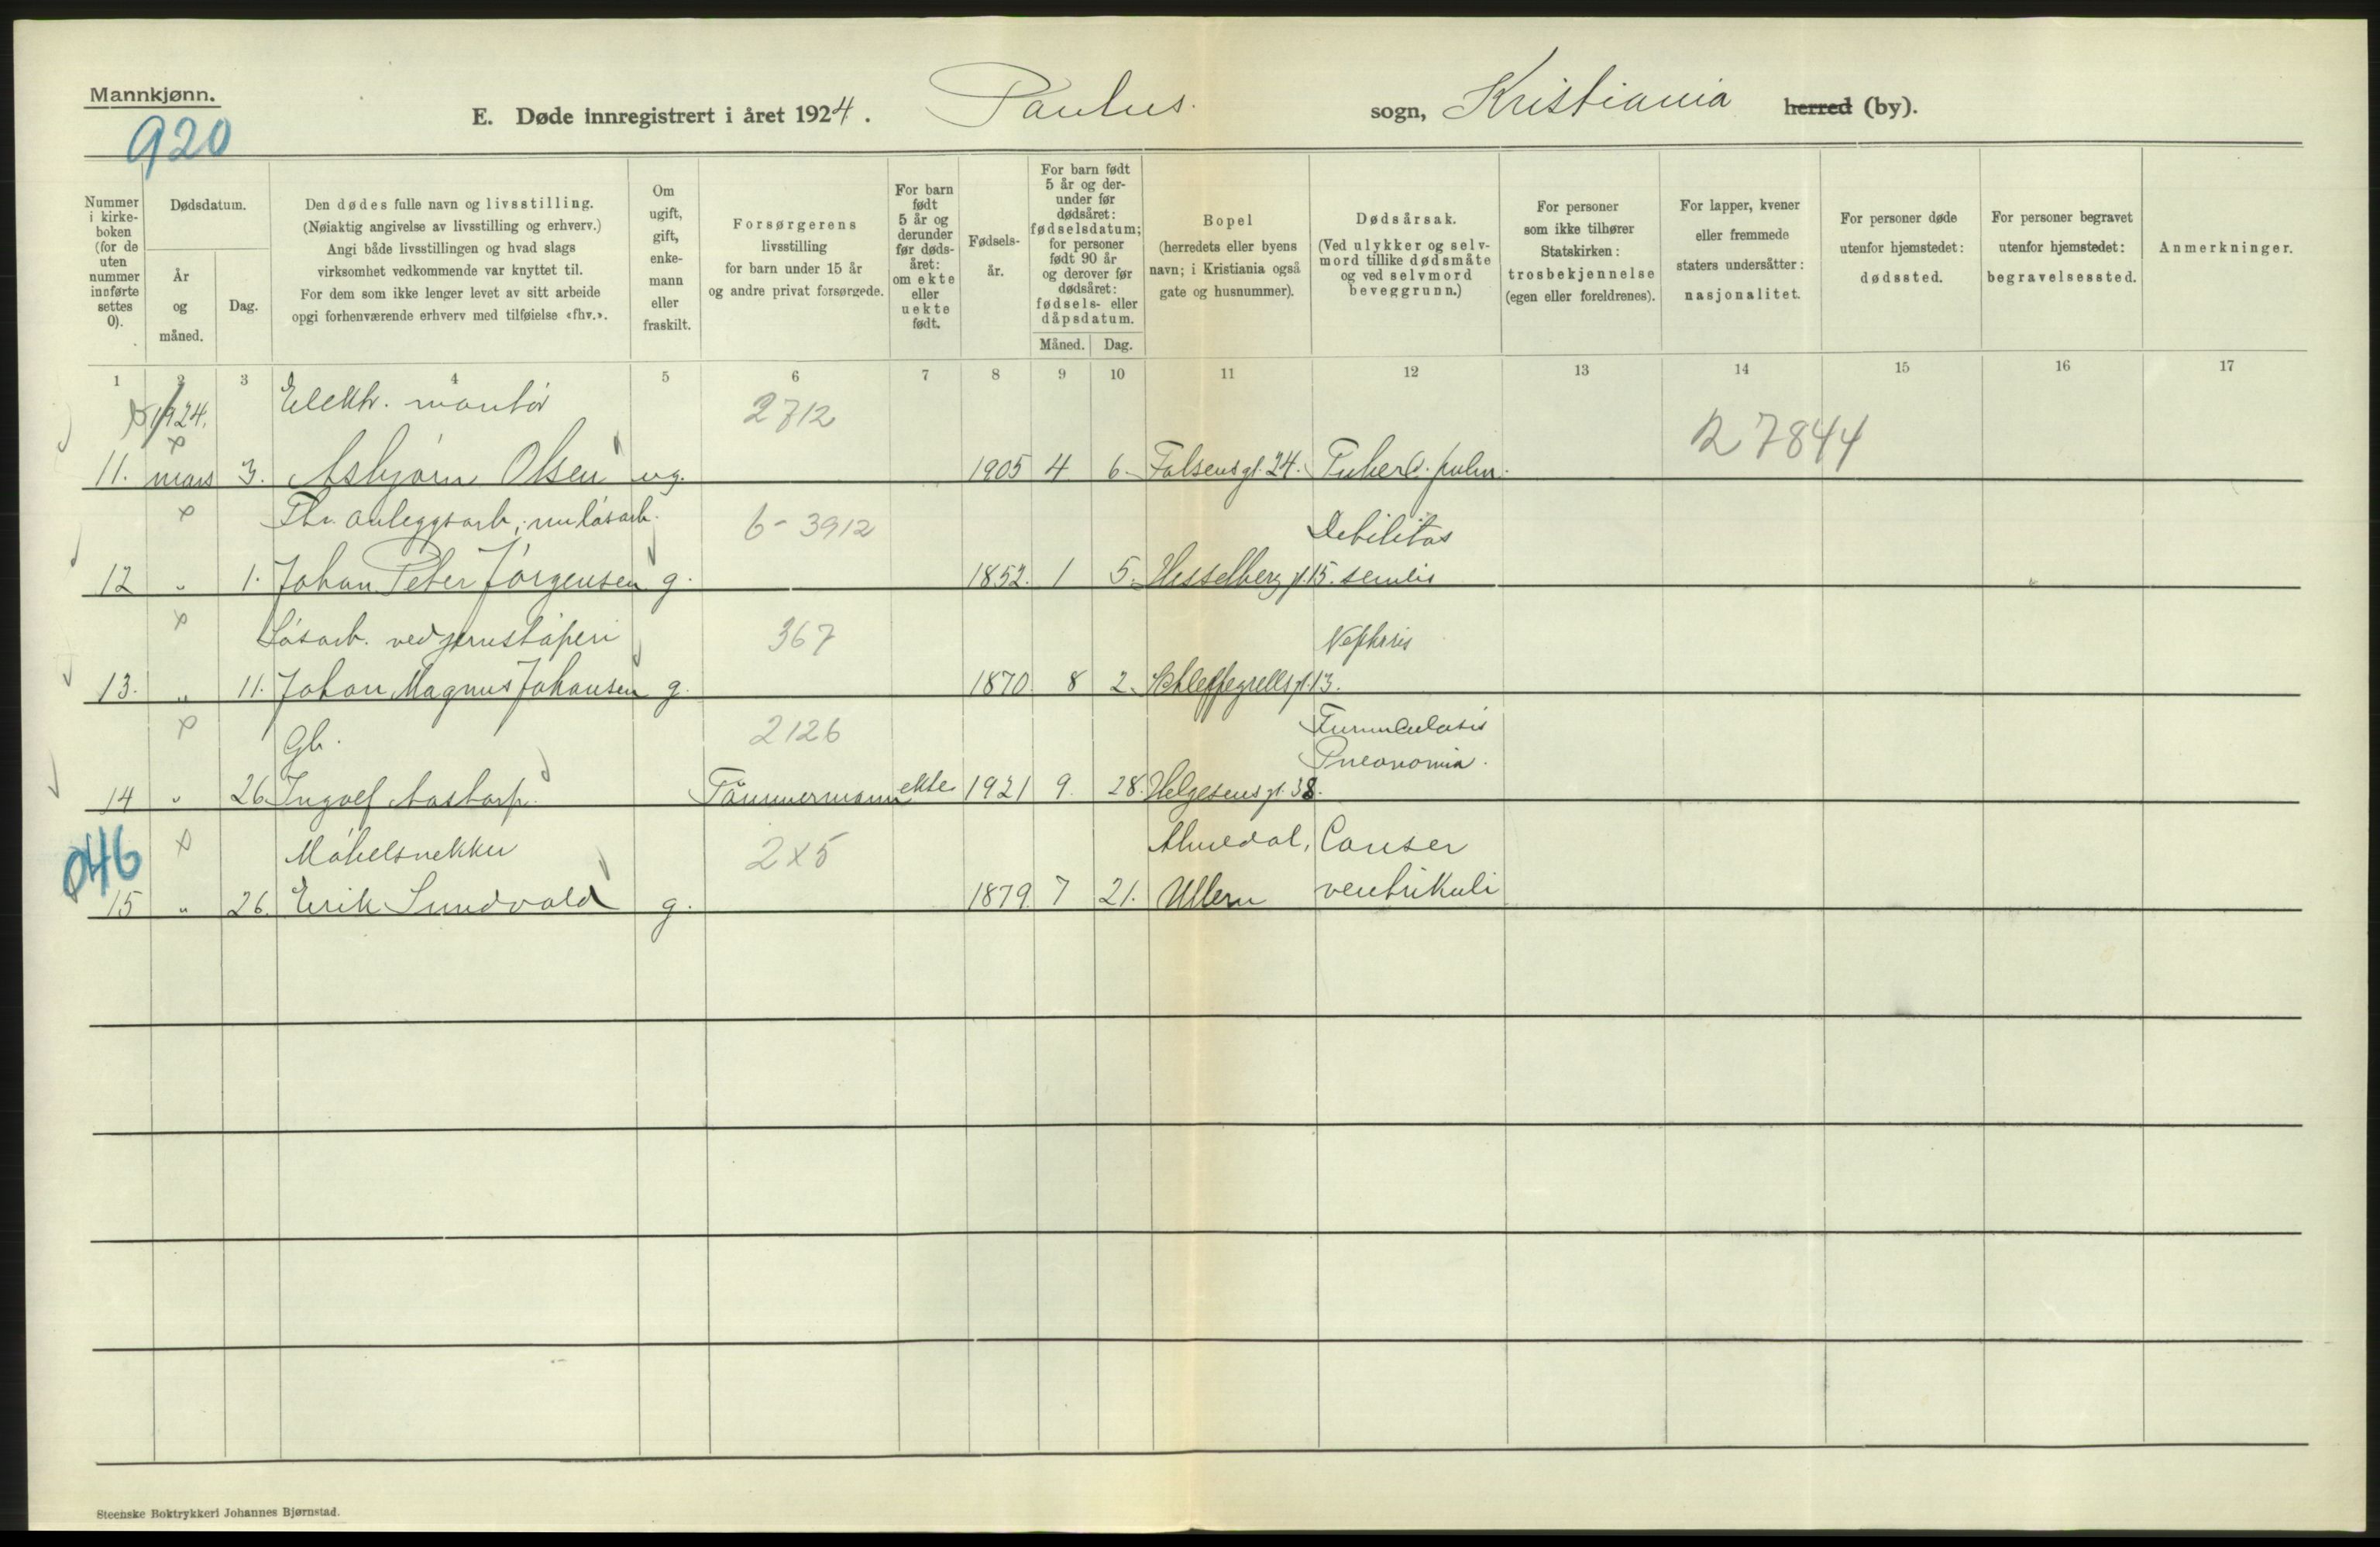 Mannkjønn.
920
E. Døde innregistrert i året 1924. Paulus. sogn, Kristiania herred (by).
Nummer i kirkeboken (for de uten nummer innførte settes 0).
Dødsdatum.
År og måned.
Dag.
Den dødes fulle navn og livsstilling.
(Nøiaktig angivelse av livsstilling og erhverv.)
Angi både livsstillingen og hvad slags
virksomhet vedkommende var knyttet til.
For dem som ikke lenger levet av sitt arbeide
opgi forhenværende erhverv med tilføielse «fhv.».
Om ugift, gift, enkemann eller fraskilt.
Forsørgerens
livsstilling
for barn under 15 år
og andre privat forsørgede.
For barn født 5 år og derunder før dødsåret: om ekte eller uekte født.
Fødselsår.
For barn født 5 år og derunder før dødsåret: fødselsdatum; for personer født 90 år og derover før dødsåret: fødsels- eller dåpsdatum.
Måned. Dag.
Bopel
(herredets eller byens
navn; i Kristiania også
gate og husnummer).
Dødsårsak.
(Ved ulykker og selvmord tillike dødsmåte og ved selvmord beveggrunn.)
For personer
som ikke tilhører
Statskirken:
trosbekjennelse
(egen eller foreldrenes).
For lapper, kvener
eller fremmede
staters undersåtter:
nasjonalitet.
For personer døde
utenfor hjemstedet:
dødssted.
For personer begravet
utenfor hjemstedet:
begravelsessted.
Anmerkninger.
1 2 3 4 5 6 7 8 9 10 11 12 13 14 15 16 17
1924. Elektr. montör 2712 27844
11. mars 3. Asbjörn Olsen ug. 1905 4 6. Falsensgt. 24. Tuberc. pulm.
Fhv. anleggsarb., nu lösarb. 6-3912 Debilitas
12 " 1. Johan Peter Jörgensen g. 1852. 1 5. Hesselberg gt. 15. senilis
Lösarb. ved jernstöperi 367
13. " 11. Johan Magnus Johansen g. 1870. 8 2. Schleppegrellsgt. 13.
Gb. 2126 Furunculosis
Pneonomia.
14 " 26. Ingolf Aastorp. Tömmermann ekte 1921 9. 28. Helgesensgt. 38.
046 Möbelsnekker 2x5 Almedal, Canser
15 " 26. Erik Sundvold g. 1879. 7 21. Ullern ventrikuli
Steenske Boktrykkeri Johannes Bjørnstad.